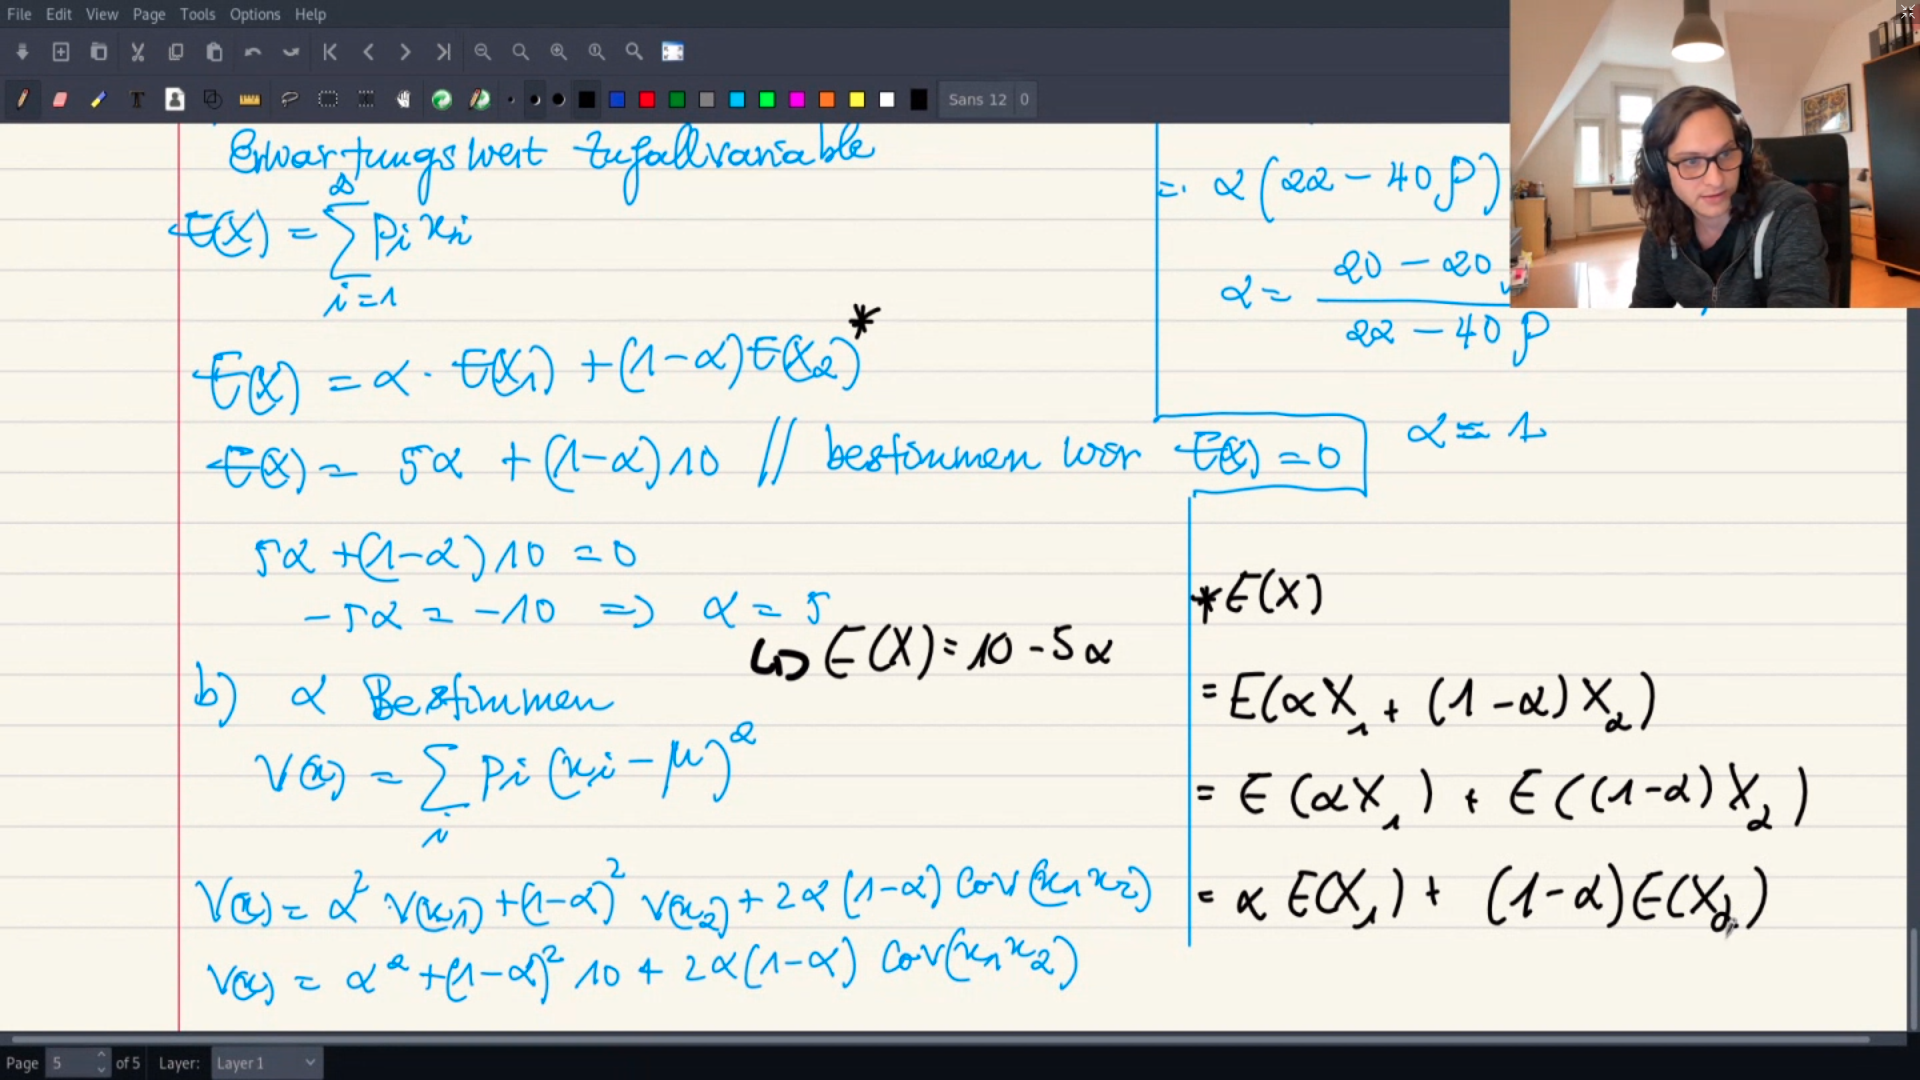 File Edit View Page Tools Options Help
Sans 12 0
Erwartungswert Zufallvariable
E(X) = ∑_{i=1}^{s} p_i x_i
E(X) = α · E(X₁) + (1-α) E(X₂) *
E(X) = 5α + (1-α) 10 // bestimmen wir E(X) = 0
5α + (1-α) 10 = 0
-5α = -10 => α = 5
↳ E(X) = 10 - 5α
b) α Bestimmen
V(x) = ∑_i p_i (x_i - μ)²
V(x) = α² V(x₁) + (1-α)² V(x₂) + 2α (1-α) Cov(x₁ x₂)
V(x) = α² + (1-α)² 10 + 2α (1-α) Cov(x₁ x₂)
= α (22 - 40 ρ)
α = (20 - 20) / (22 - 40 ρ)
α = 1
* E(X)
= E(αX₁ + (1-α) X₂)
= E(αX₁) + E((1-α) X₂)
= α E(X₁) + (1-α) E(X₂)
Page 5 of 5 Layer: Layer 1